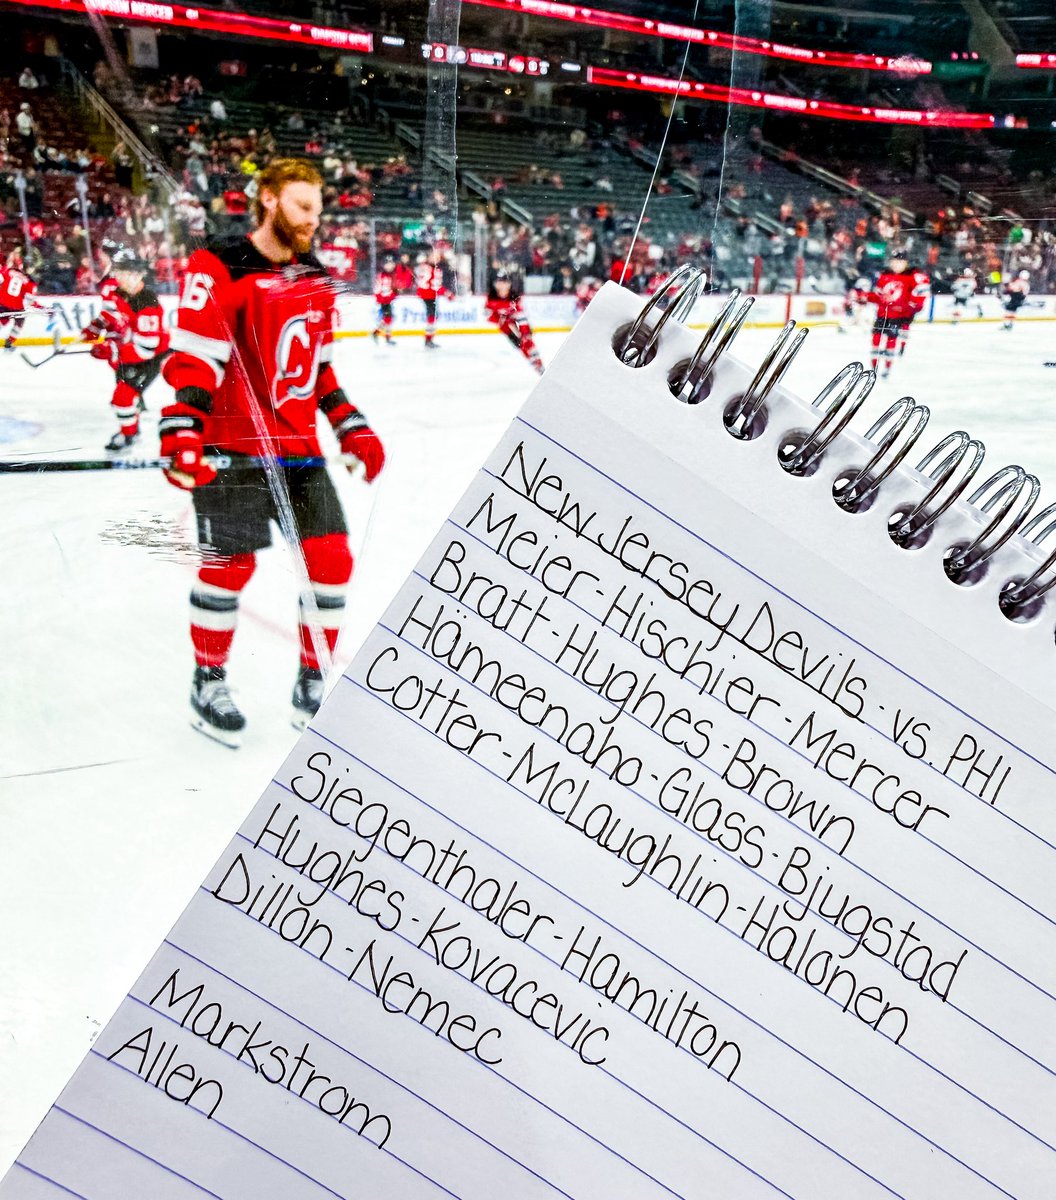 DAWSON MERCER
16
8
63
Prudential
New Jersey Devils - vs. PHI
Meier - Hischier - Mercer
Bratt - Hughes - Brown
Hämeenaho - Glass - Bjugstad
Cotter - McLaughlin - Halonen
Siegenthaler - Hamilton
Hughes - Kovacevic
Dillon - Nemec
Markstrom
Allen